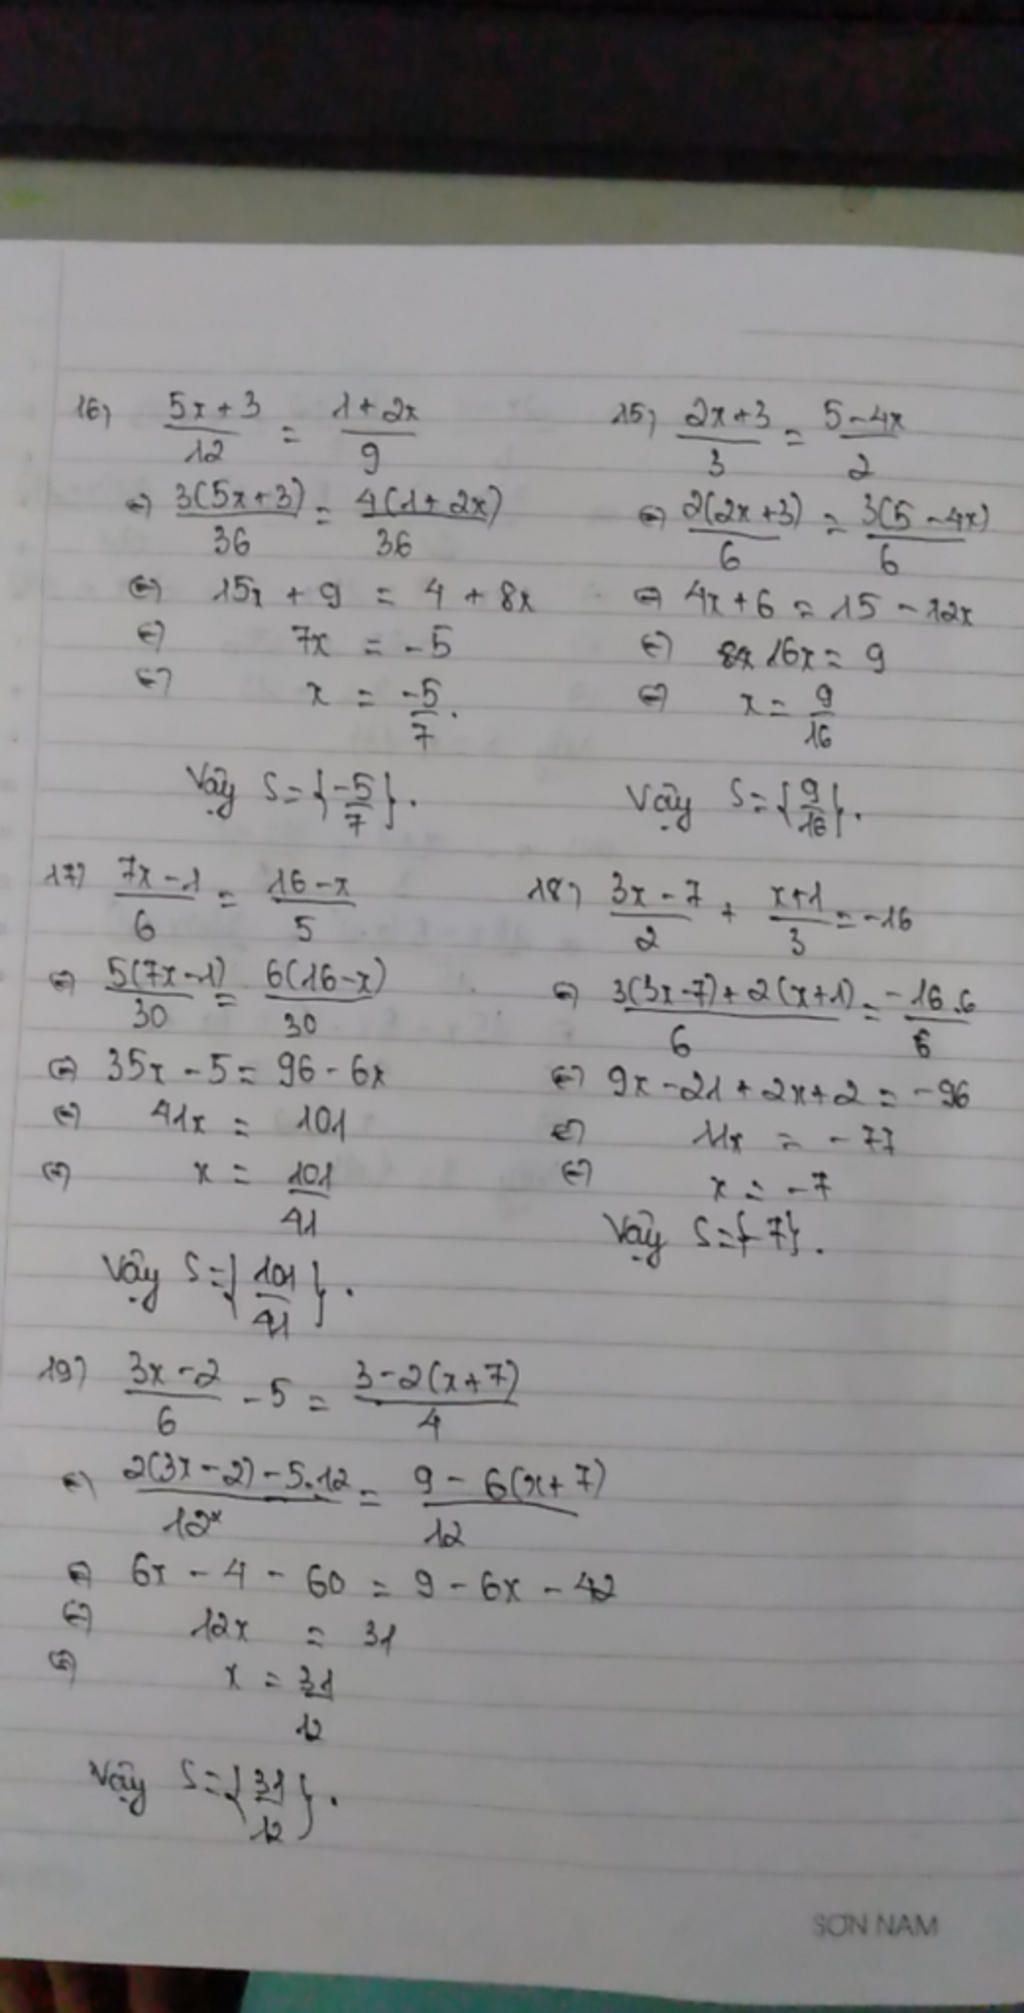 16) (5x+3)/12 = (1+2x)/9
⇔ 3(5x+3)/36 = 4(1+2x)/36
⇔ 15x + 9 = 4 + 8x
⇔ 7x = -5
⇔ x = -5/7.
Vậy S = {-5/7}.
15) (2x+3)/3 = (5-4x)/2
⇔ 2(2x+3)/6 = 3(5-4x)/6
⇔ 4x+6 = 15 - 12x
⇔ 16x = 9
⇔ x = 9/16
Vậy S = {9/16}.
17) (7x-1)/6 = (16-x)/5
⇔ 5(7x-1)/30 = 6(16-x)/30
⇔ 35x - 5 = 96 - 6x
⇔ 41x = 101
⇔ x = 101/41
Vậy S = {101/41}.
18) (3x-7)/2 + (x+1)/3 = -16
⇔ (3(3x-7)+2(x+1))/6 = -16.6/6
⇔ 9x-21+2x+2 = -96
⇔ 11x = -77
⇔ x = -7
Vậy S={-7}.
19) (3x-2)/6 - 5 = (3-2(x+7))/4
⇔ (2(3x-2)-5.12)/12 = (9-6(x+7))/12
⇔ 6x - 4 - 60 = 9 - 6x - 42
⇔ 12x = 31
⇔ x = 31/12
Vậy S = {31/12}.
SƠN NAM